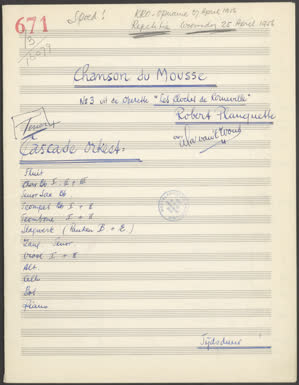 671
Spoed!
KRO-opname 27 April 1956
Repetitie Woensdag 25 April 1956
Chanson du Mousse
No 3 uit de Operette "Les cloches de Corneville"
Robert Planquette
Tenor
Cascade Orkest:
Fluit
Tenor Sax Bb
Trompet Bb I + II
Trombone I + II
Slagwerk (Pauken B + E)
Zang Tenor
Viool I + II
Alt.
Celli
Bas
Piano
Tijdsduur